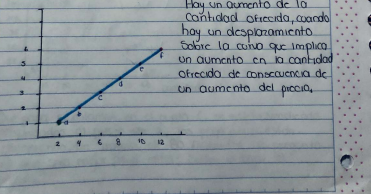 Hay un aumento de la
cantidad ofrecida, cuando
hay un desplazamiento
sobre la curva que implica
un aumento en la cantidad
ofrecida de consecuencia de
un aumento del precio.
6
5
4
3
2
1
a
b
c
d
e
f
2 4 6 8 10 12